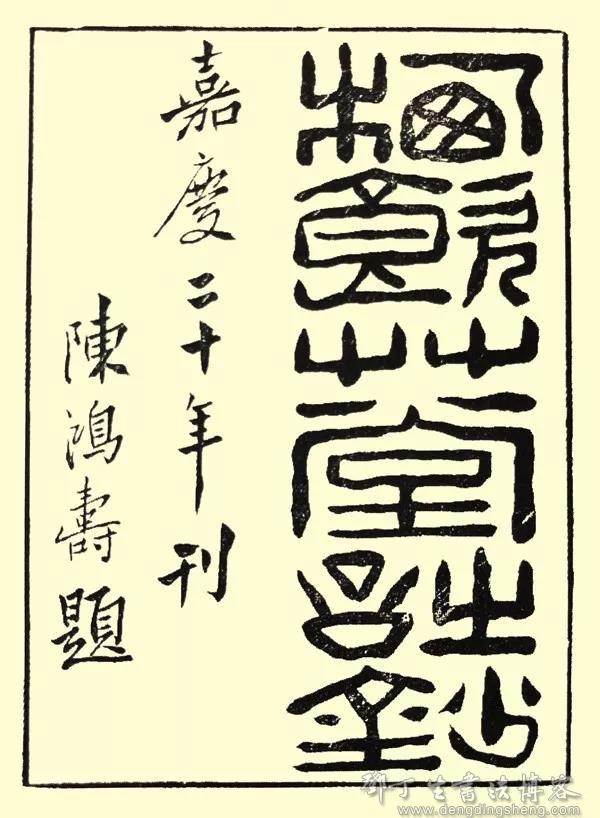 栖飲艸堂詩鈔
嘉慶二十年刊
陳鴻壽題
鄧丁生書法博客
www.dengdingsheng.com